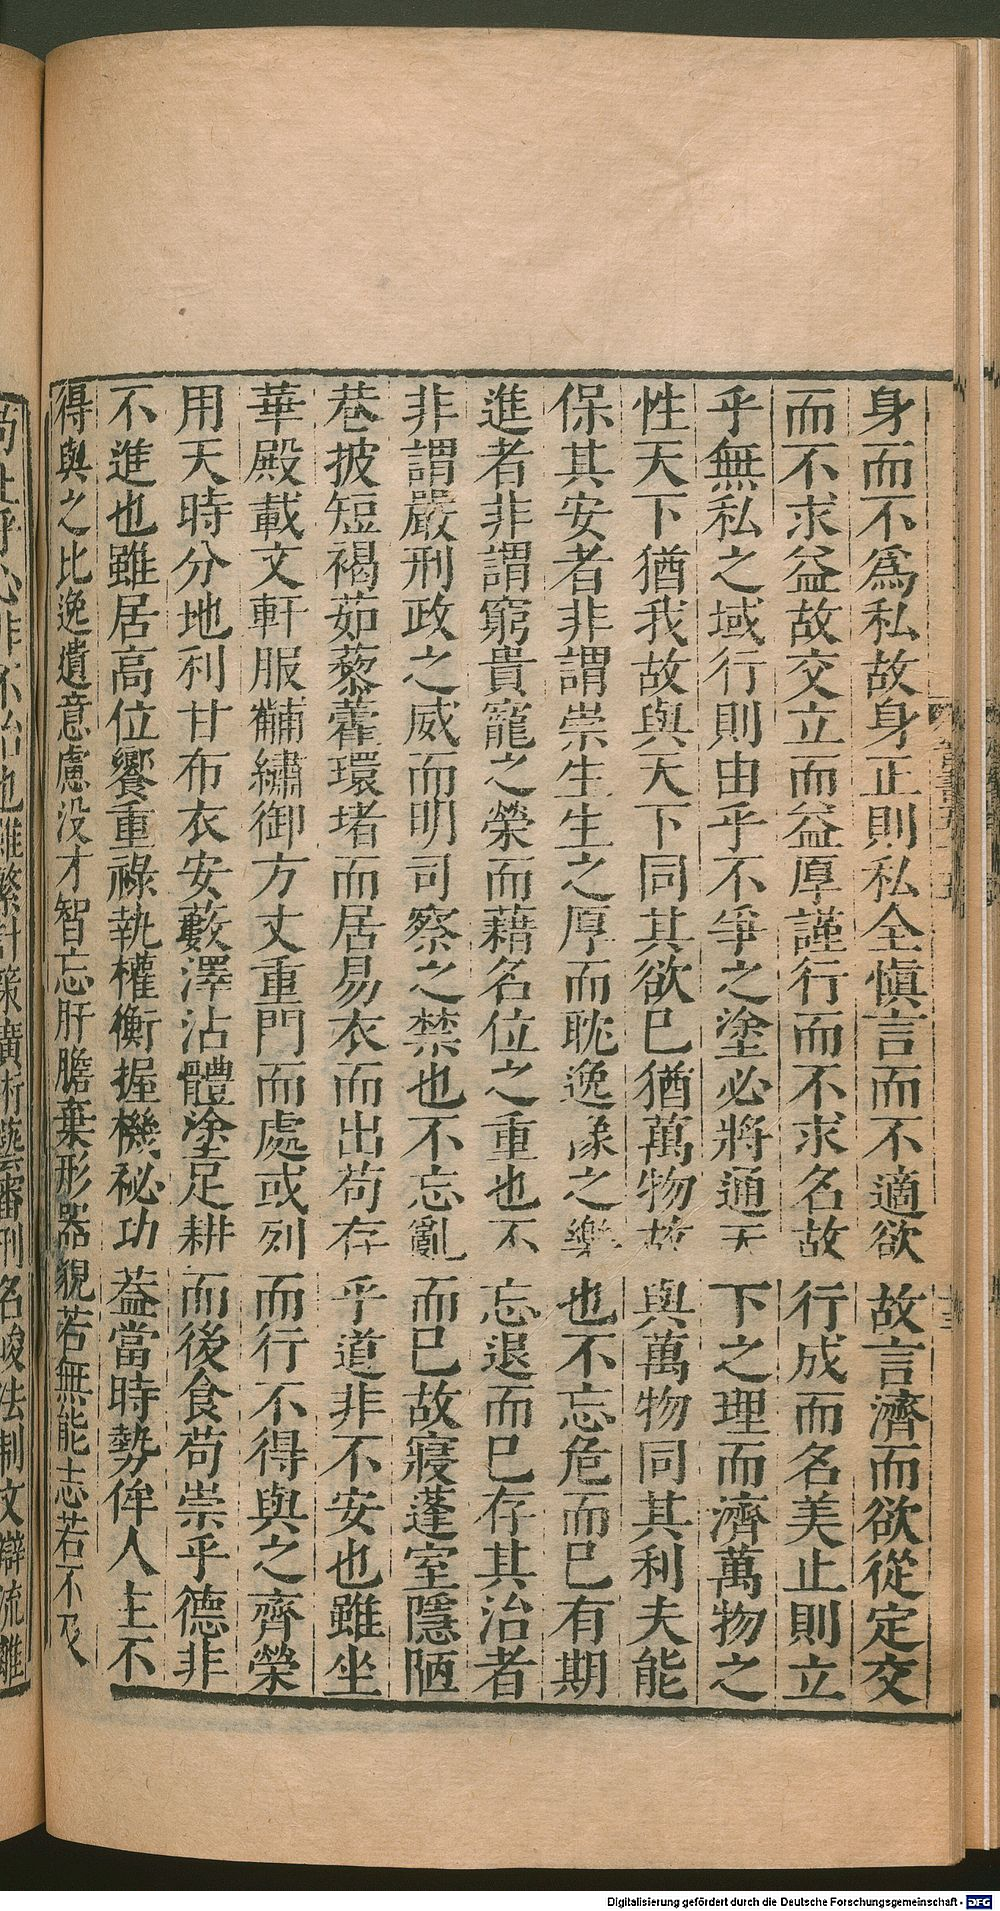 身而不爲私故身正則私全愼言而不適欲故言濟而欲從定交
而不求益故交立而益厚謹行而不求名故行成而名美止則立
乎無私之域行則由乎不爭之塗必將通天下之理而濟萬物之
性天下猶我故與天下同其欲已猶萬物故與萬物同其利夫能
保其安者非謂崇生生之厚而耽逸豫之樂也不忘危而已有期
進者非謂窮貴寵之榮而藉名位之重也不忘退而已存其治者
非謂嚴刑政之威而明司察之禁也不忘亂而已故寢蓬室隱陋
巷披短褐茹藜藿環堵而居易衣而出苟存乎道非不安也雖坐
華殿載文軒服黼繡御方丈重門而處或列而行不得與之齊榮
用天時分地利甘布衣安藪澤沾體塗足耕而後食苟崇乎德非
不進也雖居高位饗重祿執權衡握機祕功蓋當時勢侔人主不
得與之比逸遺意慮没才智忘肝膽棄形器貌若無能志若不及
也雖繁計策廣術藝審刑名峻法制文辯流離
Digitalisierung gefördert durch die Deutsche Forschungsgemeinschaft - DFG